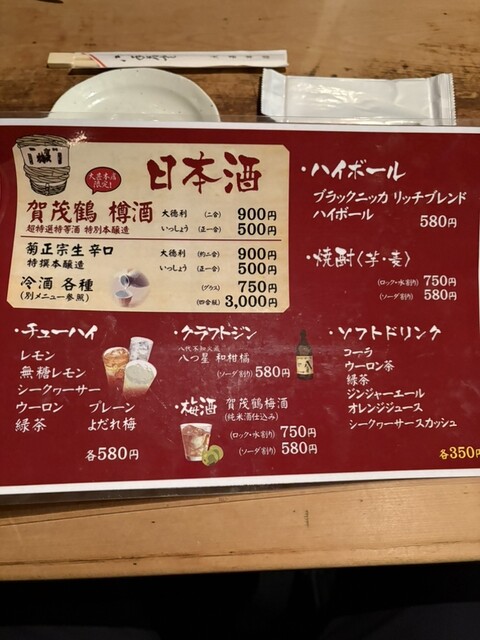 大甚本店
限定!
日本酒
賀茂鶴 樽酒
超特選特等酒 特別本醸造
大徳利 (二合) 900円
いっしょう (正一合) 500円
菊正宗生辛口
特撰本醸造
大徳利 (約二合) 900円
いっしょう (正一合) 500円
冷酒 各種
(別メニュー参照)
(グラス) 750円
(四合瓶) 3,000円
・ハイボール
ブラックニッカ リッチブレンド
ハイボール 580円
・焼酎〈芋・麦〉
(ロック・水割り) 750円
(ソーダ割り) 580円
・チューハイ
レモン
無糖レモン
シークヮーサー
ウーロン プレーン
緑茶 よだれ梅
各580円
・クラフトジン
八代不知火蔵
八つ星 和柑橘
(ソーダ割り) 580円
・梅酒 賀茂鶴梅酒
(純米酒仕込み)
(ロック・水割り) 750円
(ソーダ割り) 580円
・ソフトドリンク
コーラ
ウーロン茶
緑茶
ジンジャーエール
オレンジジュース
シークヮーサースカッシュ
各350円